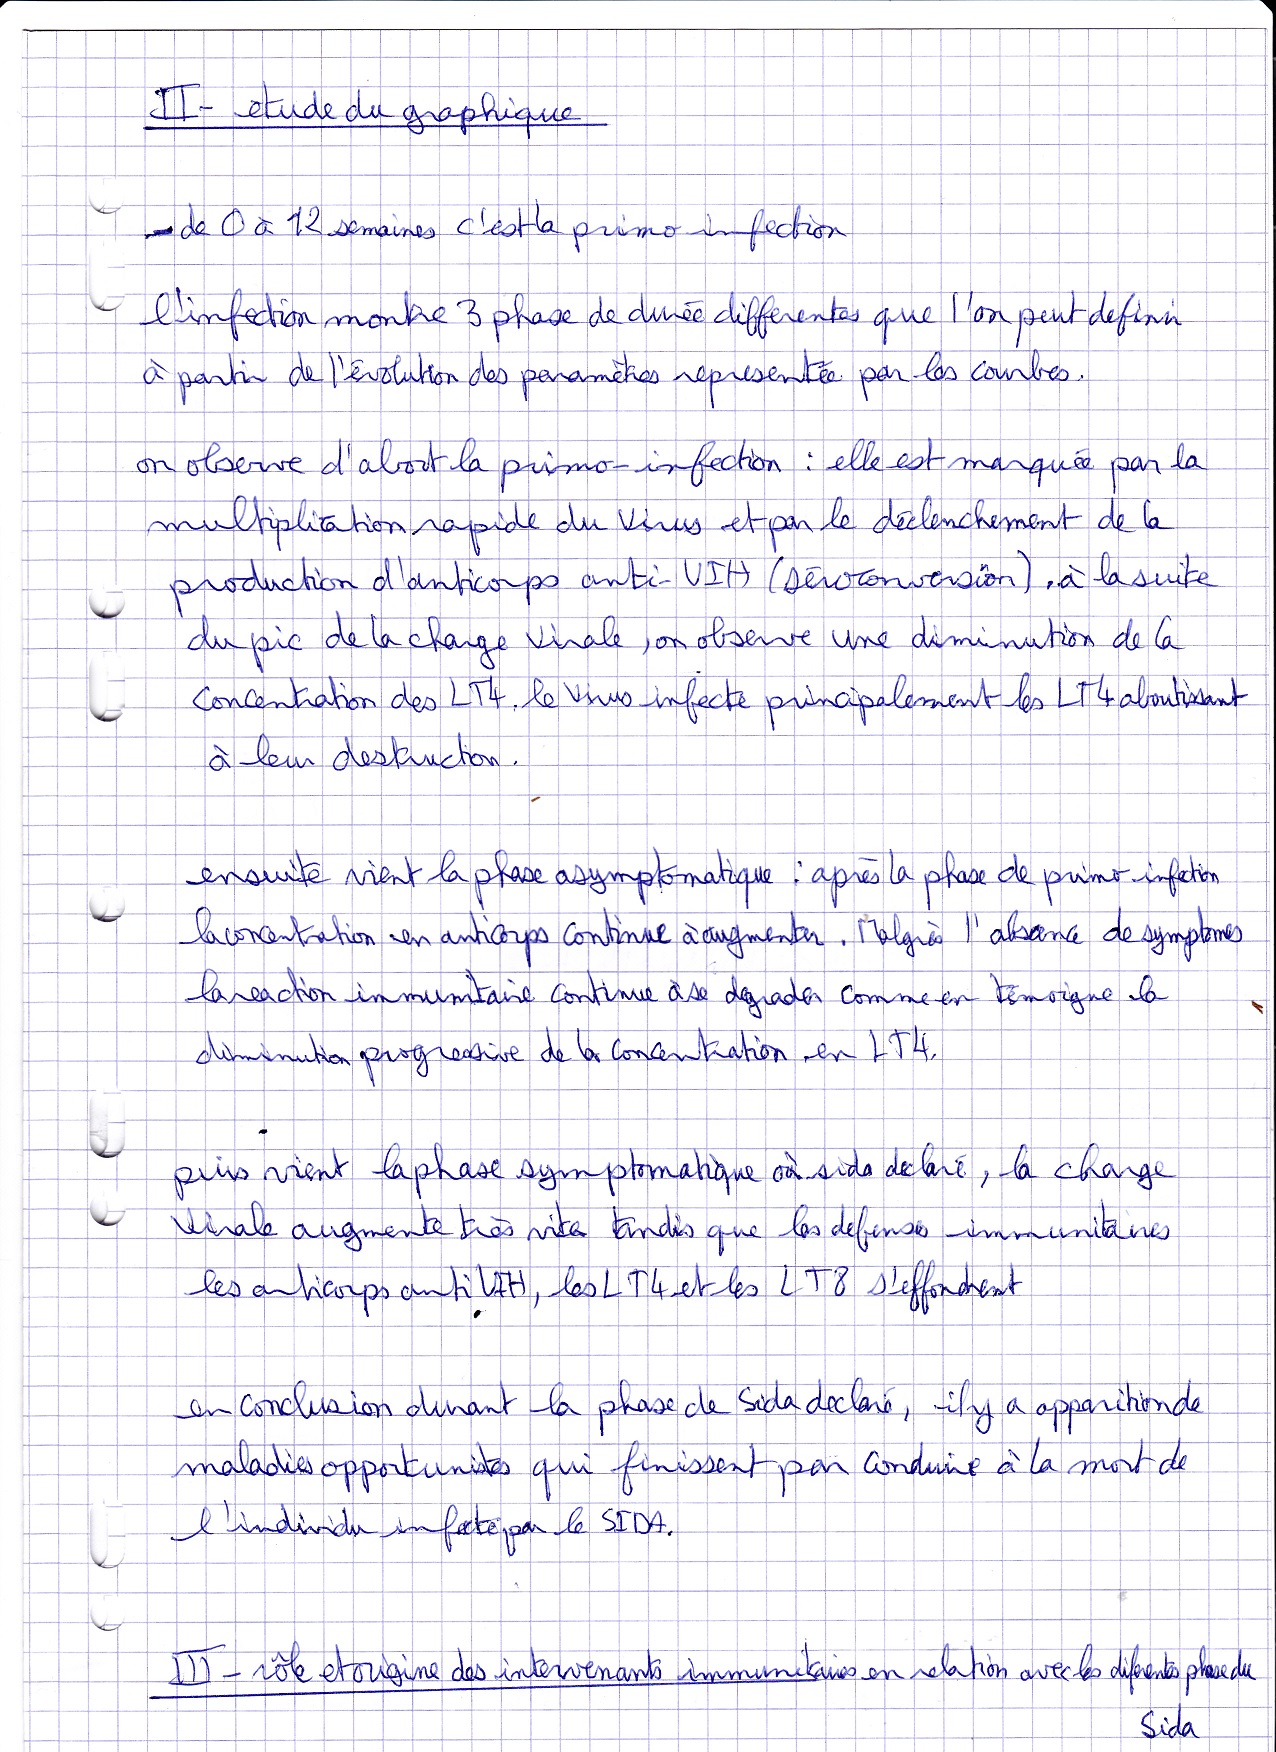 II - etude du graphique
- de 0 à 12 semaines c'est la primo infection
l'infection montre 3 phase de durée differentes que l'on peut definir
à partir de l'évolution des paramètres representée par les courbes.
on observe d'abort la primo-infection : elle est marquée par la
multiplication rapide du virus et par le déclenchement de la
production d'anticorps anti-VIH (séroconversion). à la suite
du pic de la charge virale, on observe une diminution de la
concentration des LT4. le virus infecte principalement les LT4 aboutissant
à leur destruction.
ensuite vient la phase asymptomatique : après la phase de primo-infection
la concentration en anticorps continue à augmenter. Malgrès l'absence de symptomes
la reaction immunitaire continue à se degrader comme en témoigne la
diminution progressive de la concentration en LT4.
puis vient la phase symptomatique où sida declaré, la charge
virale augmente très vite tandis que les defenses immunitaires
les anticorps anti VIH, les LT4 et les LT8 s'effondrent
en conclusion durant la phase de Sida declaré, il y a apparition de
maladies opportunistes qui finissent par conduire à la mort de
l'individu infecté par le SIDA.
III - rôle et origine des intervenants immunitaires en relation avec les diferentes phase du
Sida